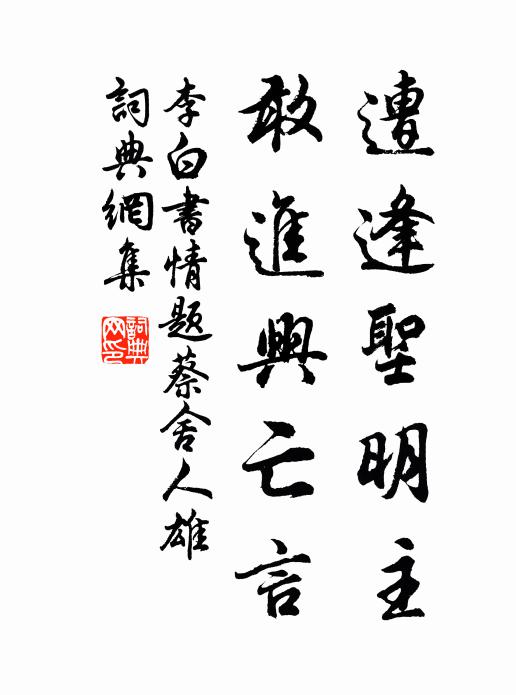 遭逢聖明主
敢進興亡言
李白書情題蔡舍人雄
詞典網集
詞典網印